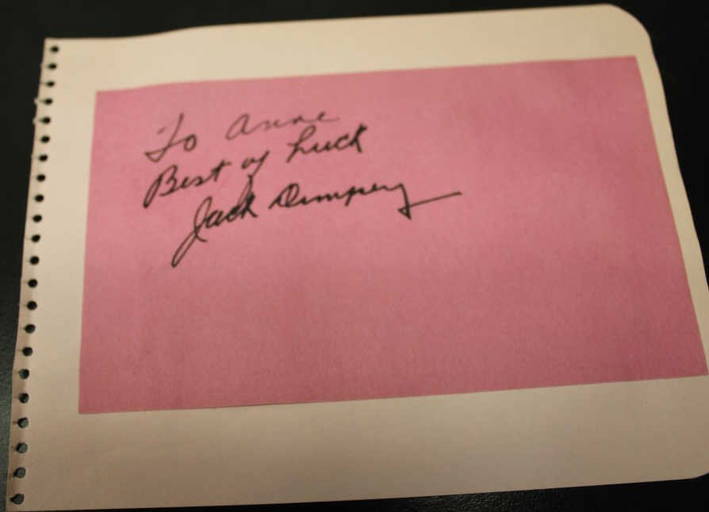 To Anne
Best of Luck
Jack Dempsey